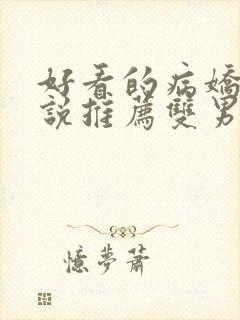 好看的病嬌
說推薦雙男
憶夢蕭